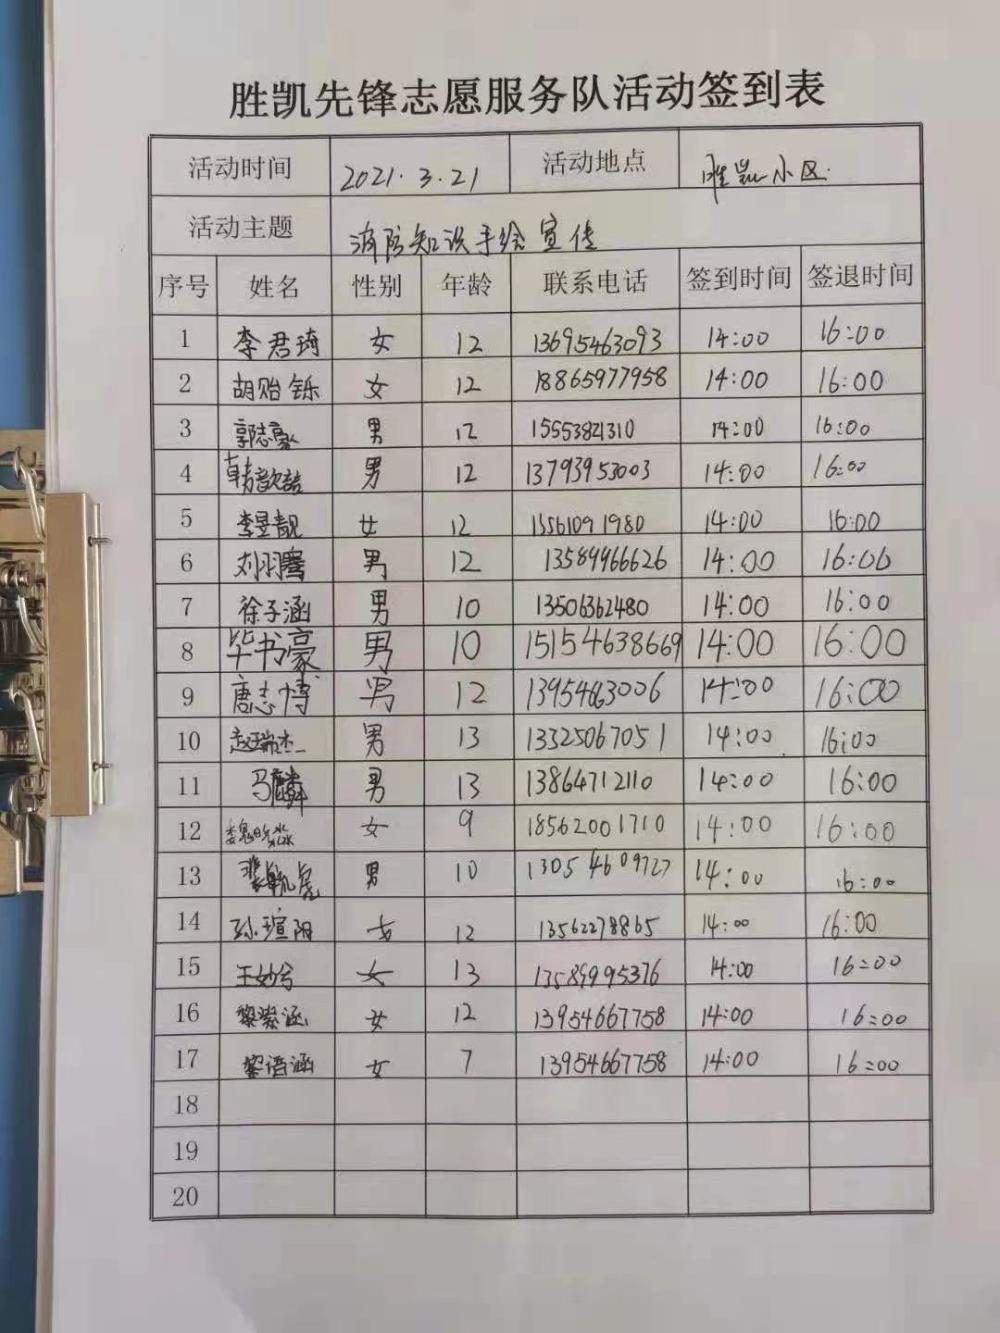 胜凯先锋志愿服务队活动签到表
活动时间 2021.3.21 活动地点 胜凯小区.
活动主题 消防知识手绘宣传
序号 姓名 性别 年龄 联系电话 签到时间 签退时间
1 李君琦 女 12 13695463093 14:00 16:00
2 胡贻铄 女 12 18865977958 14:00 16:00
3 郭志豪 男 12 15553821310 14:00 16:00
4 韩歆喆 男 12 13793953003 14:00 16:00
5 李昱靓 女 12 13561091980 14:00 16:00
6 刘羽骞 男 12 13589966626 14:00 16:00
7 徐子涵 男 10 13506362480 14:00 16:00
8 毕书豪 男 10 15154638669 14:00 16:00
9 唐志博 男 12 13954663006 14:00 16:00
10 赵瑞杰 男 13 13325067051 14:00 16:00
11 马麟 男 13 13864712110 14:00 16:00
12 女 9 18562001710 14:00 16:00
13 男 10 13054609727 14:00 16:00
14 孙瑄阳 女 12 13562278865 14:00 16:00
15 王妙兮 女 13 13589995376 14:00 16:00
16 黎紫涵 女 12 13954667758 14:00 16:00
17 黎语涵 女 7 13954667758 14:00 16:00
18
19
20